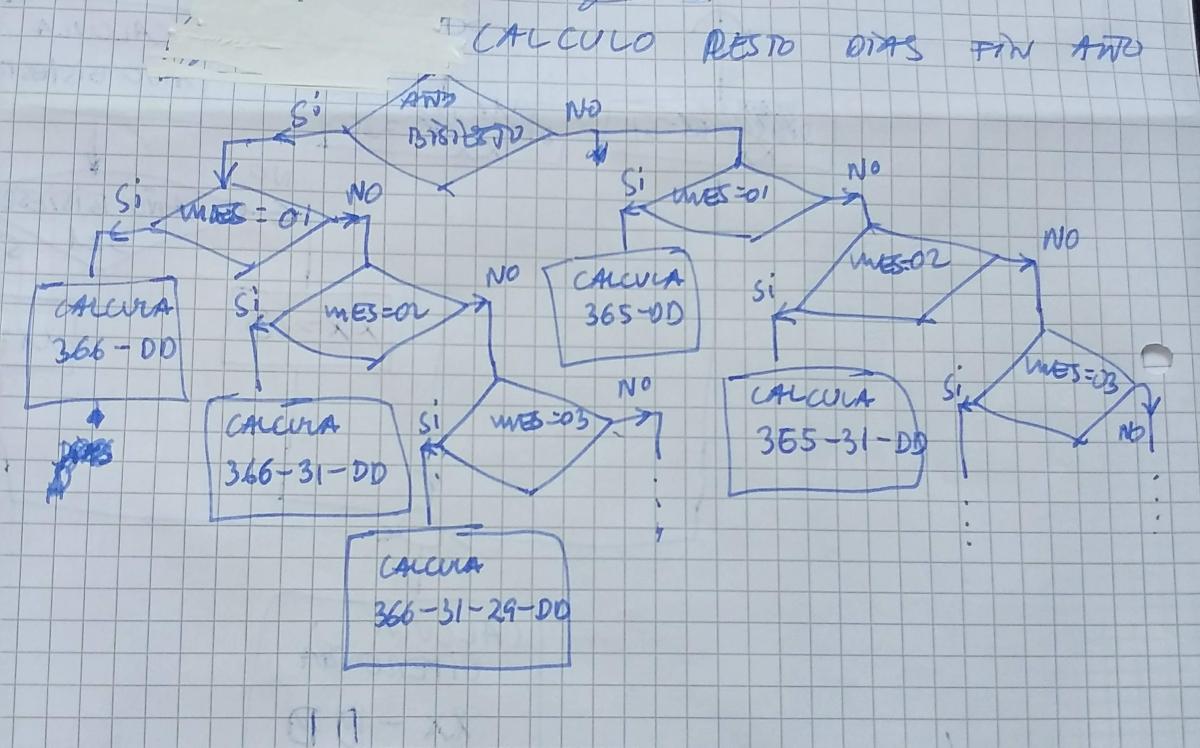 CALCULO RESTO DIAS FIN AÑO
AÑO
BISIESTO
Si
NO
mES = 01
Si
NO
CALCULA
366-DD
mES=02
Si
NO
CALCULA
366-31-DD
mES=03
Si
NO
CALCULA
366-31-29-DD
mES=01
Si
NO
CALCULA
365-DD
mES=02
Si
NO
CALCULA
365-31-DD
mES=03
Si
NO